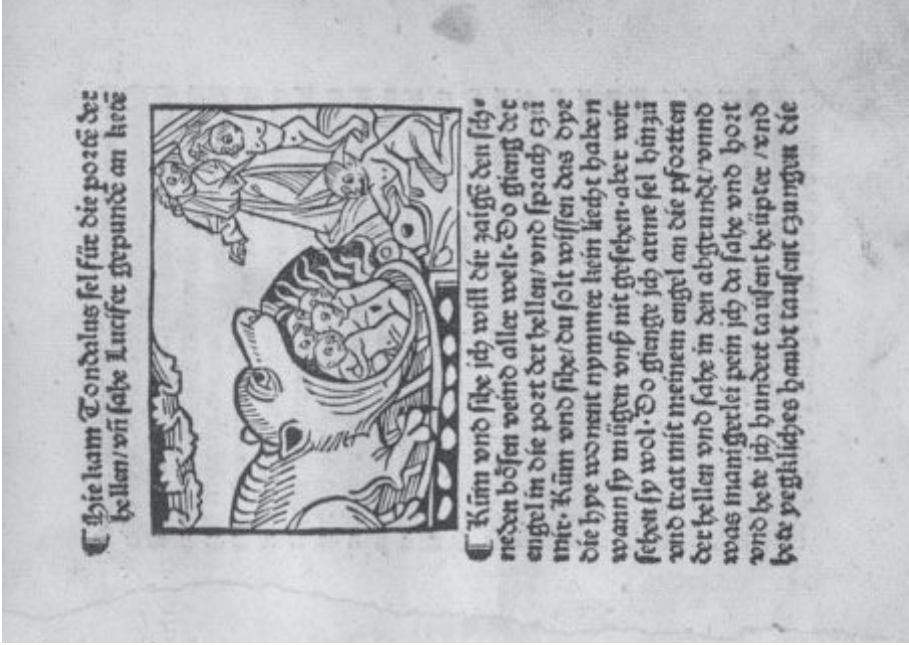 ¶ Hie kam Tondalus sel für die portē der
hellen/vñ sahe Lucifer gepundē an ketē
¶ Kum vnd sihe ich will dir zaigē den schē
nedn bösen veind aller welt· Do gieng der
engel in die port der hellen/vnd sprach zů
mir· Kum vnd sihe du solt wissen das dye
die hye wonent nymmer kein liecht haben
wann sy mügen vns nit gesehen· aber wir
sehen sy wol· Do gienge ich arme sel hinzů
vnd trat mit meinem engel an die pfortten
der hellen vnd sahe in den abgrunde/vnnd
was manigerlei pein ich da sahe vnd hort
vnd hete ich hundert tausent heupter/vnd
hete yegkliches haubt tausent zungen die